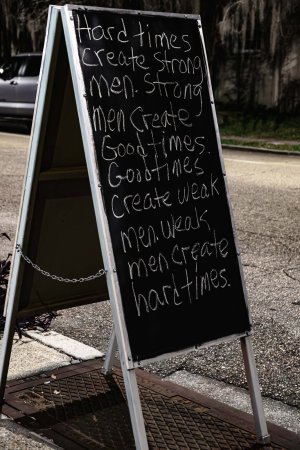 Hard times
create strong
men. Strong
men create
Good times.
Good times
create weak
men. weak
men create
hard times.